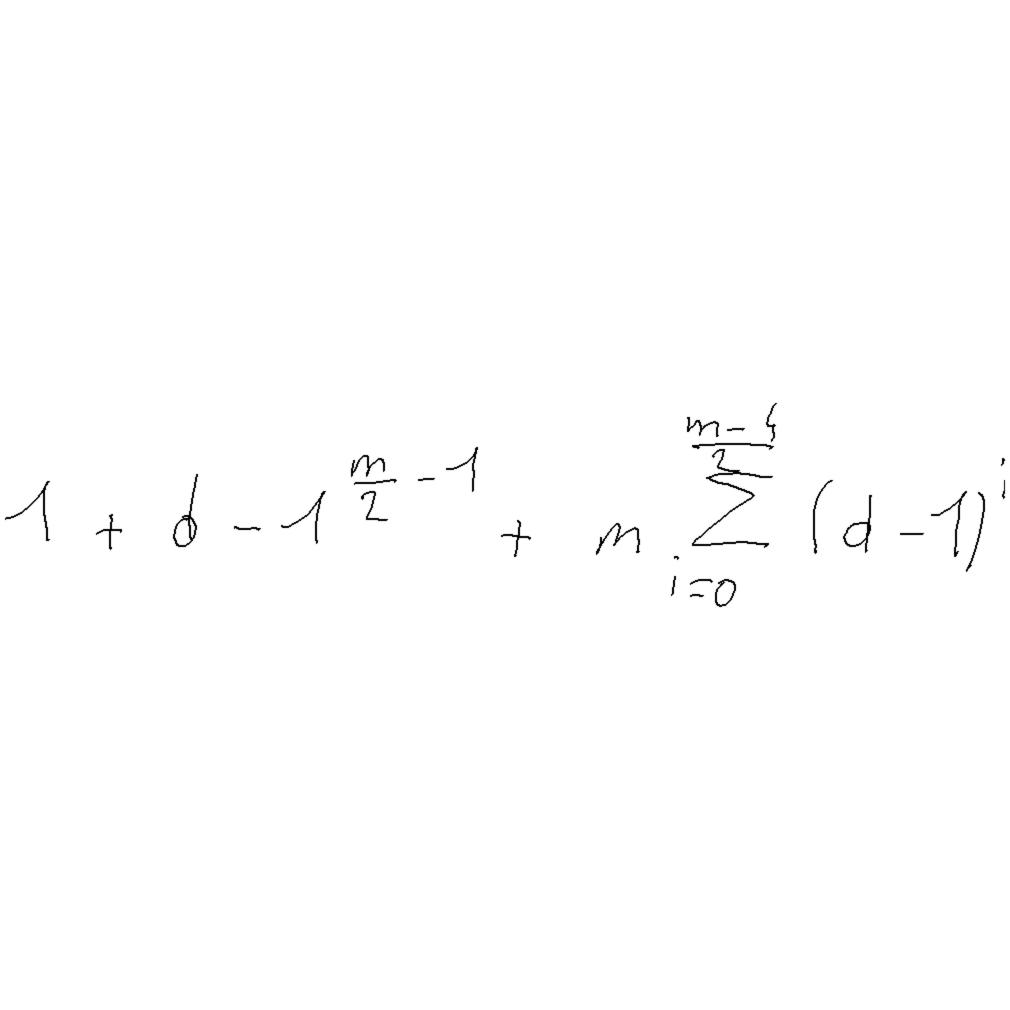 1 + d - 1^{\frac{m}{2} - 1} + m \sum_{i=0}^{\frac{m-4}{2}} (d-1)^i